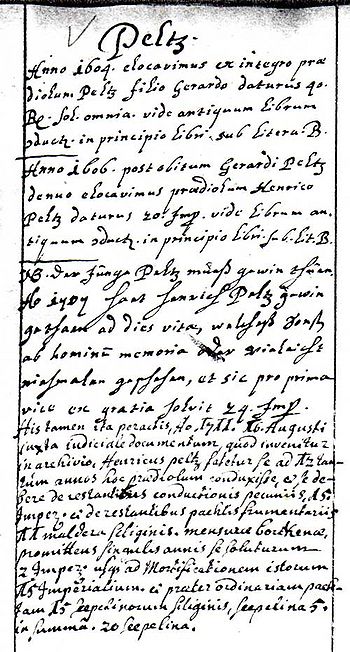 Peltz.
Anno 1604. elocavimus ex integro præ
diolum Peltz filio Gerardo daturus 40.
sol. omnia. vide antiquum librum
in principio libri sub litera. B.
Anno 1606. post obitum Gerardi Peltz
denuo elocavimus prædiolum Henrico
Peltz daturus 20 Imp. vide librum an-
tiquum in principio libri sub. lit. B.
NB. Der Junge Peltz mueß gewin thuen.
Ao 1707 haet Henrich Peltz gewin
gethaen ad dies vitæ, welcheß sonst
ab hominū memoria oder vieleicht
niehmalen geschehen, et sic pro prima
vice ex gratia solvit 24. Imp.
His tamen ita peractis, Ao. 1711. 16. Augusti
iuxta iudiciale documentum, quod invenitur
in archivio, Henricus peltz fatetur se ad 12 tan-
tum annos hoc prædiolum conduxisse, et se de-
bere de restantibus conductionis pecuniis, 15
Imper. et de restantibus pachtis frumentariis
11 maldera siliginis. mensuræ borckenæ,
promittens singulis annis se soluturum
2 Imper. usq ad Mortificationem istorum
15 Imperialium. et præter ordinariam pach-
tam 15 scepelinorum siliginis, scepelina 5.
in summa. 20 scepelina.